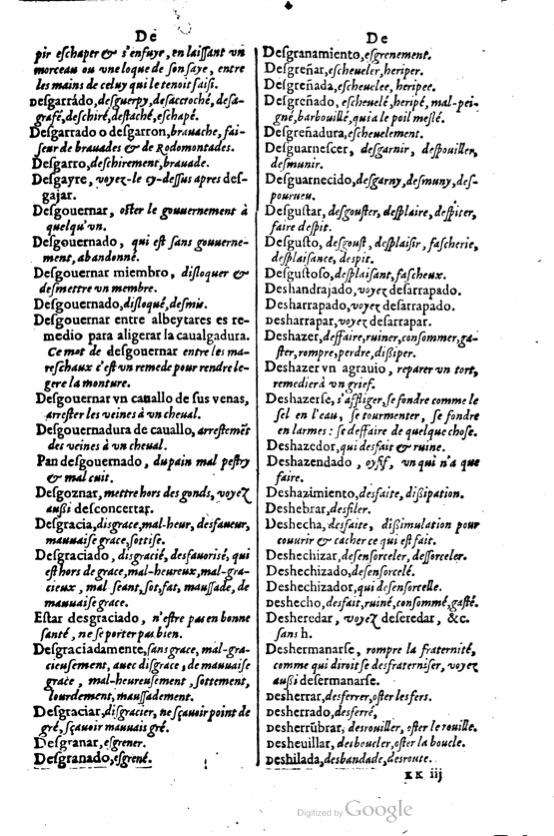 De
pir eschaper & s'enfuye, en laissant vn
morceau ou vne loque de son saye, entre
les mains de celuy qui le tenoit saisi.
Desgarrádo, desguerpy, desaccroché, desa-
grafé, deschiré, destaché, eschapé.
Desgarrado o desgarron, brauache, fai-
seur de brauades & de Rodomontades.
Desgarro, deschirement, brauade.
Desgayre, voyez-le cy-dessus apres des-
gajar.
Desgouernar, oster le gouuernement à
quelqu'vn.
Desgouernado, qui est sans gouuerne-
ment, abandonné.
Desgouernar miembro, disloquer &
desmettre vn membre.
Desgouernado, disloqué, desmis.
Desgouernar entre albeytares es re-
medio para aligerar la caualgadura.
Ce mot de desgouernar entre les ma-
reschaux c'est vn remede pour rendre le-
gere la monture.
Desgouernar vn cauallo de sus venas,
arrester les veines à vn cheual.
Desgouernadura de cauallo, arrestemẽt
des veines à vn cheual.
Pan desgouernado, du pain mal pestry
& mal cuit.
Desgoznar, mettre hors des gonds, voyez
außi desconcertar.
Desgracia, disgrace, mal-heur, desfaueur,
mauuaise grace, sottise.
Desgraciado, disgracié, desfauorisé, qui
est hors de grace, mal-heureux, mal-gra-
cieux, mal seant, sot, fat, maussade, de
mauuaise grace.
Estar desgraciado, n'estre pas en bonne
santé, ne se porter pas bien.
Desgraciadamente, sans grace, mal-gra-
cieusement, auec disgrace, de mauuaise
grace, mal-heureusement, sottement,
lourdement, maussadement.
Desgraciar, disgracier, ne sçauoir point de
gré, sçauoir mauuais gré.
Desgranar, esgrener.
Desgranado, esgrené.
De
Desgranamiento, esgrenement.
Desgreñar, escheueler, heriper.
Desgreñada, escheuelee, heripee.
Desgreñado, escheuelé, heripé, mal-pei-
gné, barbouillé, qui a le poil meslé.
Desgreñadura, escheuelement.
Desguarnescer, desgarnir, despouiller,
desmunir.
Desguarnecido, desgarny, desmuny, des-
pourueu.
Desgustar, desgouster, desplaire, despiter,
faire despit.
Desgusto, desgoust, desplaisir, fascherie,
desplaisance, despit.
Desgustoso, desplaisant, fascheux.
Deshandrajado, voyez desarrapado.
Desharrapado, voyez desarrapado.
Desharrapar, voyez desarrapar.
Deshazer, deffaire, ruiner, consommer, ga-
ster, rompre, perdre, dißiper.
Deshazer vn agrauio, reparer vn tort,
remedier à vn grief.
Deshazerse, s'affliger, se fondre comme le
sel en l'eau, se tourmenter, se fondre
en larmes: se deffaire de quelque chose.
Deshazedor, qui desfait & ruine.
Deshazendado, oysif, vn qui n'a que
faire.
Deshazimiento, desfaite, dißipation.
Deshebrar, desfiler.
Deshecha, desfaite, dißimulation pour
couurir & cacher ce qui est fait.
Deshechizar, desensorceler, dessorceler.
Deshechizado, desensorcelé.
Deshechizador, qui desensorcelle.
Deshecho, desfait, ruiné, consommé, gasté.
Desheredar, voyez deseredar, &c.
sans h.
Deshermanarse, rompre la fraternité,
comme qui diroit se desfraterniser, voyez
außi desermanarse.
Desherrar, desferrer, oster les fers.
Desherrado, desferré,
Desherrũbrar, desrouiller, oster le rouille.
Desheuillar, desboucler, oster la boucle.
Deshilada, desbandade, desroute.
KK iij
Digitized by Google